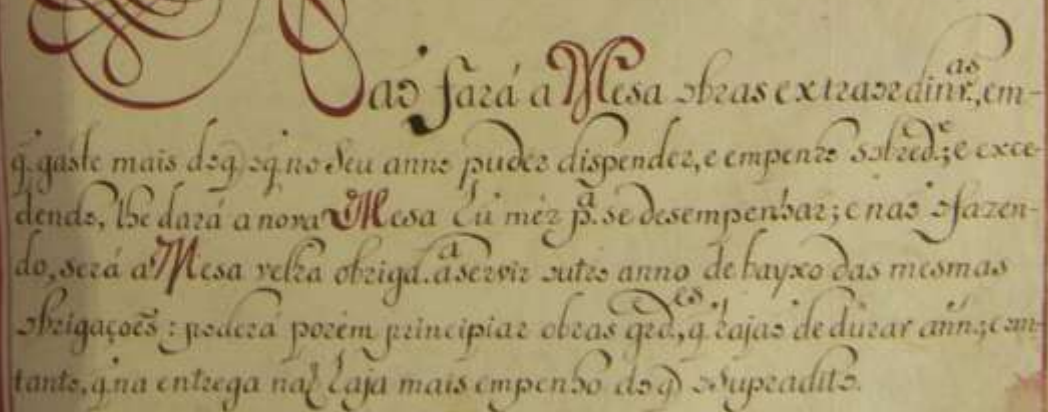 Naõ fará a Mesa obras extraordinr.as, em-
q̃ gaste mais do q̃ o q̃ no seu anno puder dispender, e empenho sobred.e; e exce-
dendo, lhe dará a nova Mesa hũ mez p.a se desempenhar; e naõ o fazen-
do, será a Mesa velha obrigd.a a servir outro anno debayxo das mesmas
obrigaçoẽs: poderá porém principiar obras grd.es, q̃ hajaõ de durar ann.;
tanto, q̃ na entrega naõ haja mais empenho do q̃ o supradito.